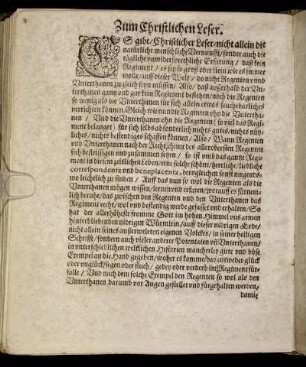 Zum Christlichen Leser.
ES gibt / Christlicher Leser / nicht allein die
natürliche menschliche Vernunfft / sonder auch die
tägliche unwidersprechliche Erfarung / daß kein
Regiment / es sey so groß oder klein wie es immer
wolle / auff dieser Welt / do nicht Regenten und
Underthanen zugleich seyn müssen. Also / daß ausserhalb der Un-
derthanen gantz und gar kein Regiment bestehen / noch die Regenten
so wenig als die Underthanen für sich allein etwas fruchtbarliches
verrichten können. Gleich wie nun die Regenten ohn die Underthа-
nen / Und die Underthanen ohn die Regenten / so viel das Regi-
ment belanget / für sich selbs absonderlich nichts gutes / nichts nütz-
liches / nichts bestendiges schaffen können / Also / Wann Regenten
und Underthanen nach der Richtschnur des allerbesten Regiments
des gegen einander zusammen seyn / so ist und das gantze Regi-
ment in diesem zeitlichen Leben / eine solche schöne / herrliche / liebliche
correspondentz und
wo leichtlich zu finden / Auff das nun so wol die Regenten als die
Underthanen mögen wissen / lernen und erfaren / worauff es fürnem-
lich beruhe / das zwischen den Regenten und den Underthanen das
Regiment recht / wol und bestendig werde gefasset und erhalten / So
hat der allerhöheste fromme Gott im hohen Himmel uns armen
hinderbliebenden nidrigen Würmlein / auff dieser nidrigen Erde /
nicht allein seines ausserwelten eigenen Volckes / in seiner heiligen
Schrifft / sondern auch vieler anderer Potentaten und Underthanen /
in unterschiedlichen weltlichen Historien mancherley gute und böse
Exempel an die Hand gegeben / woher es komme / das entweder glück
oder unglück / segen oder fluch / gedey oder verderb im Regiment für-
falle / Und nach dem solche Exempel den Regenten so wol als den
Underthanen darumb vor Augen gestellet und fürgehalten werden /
damit